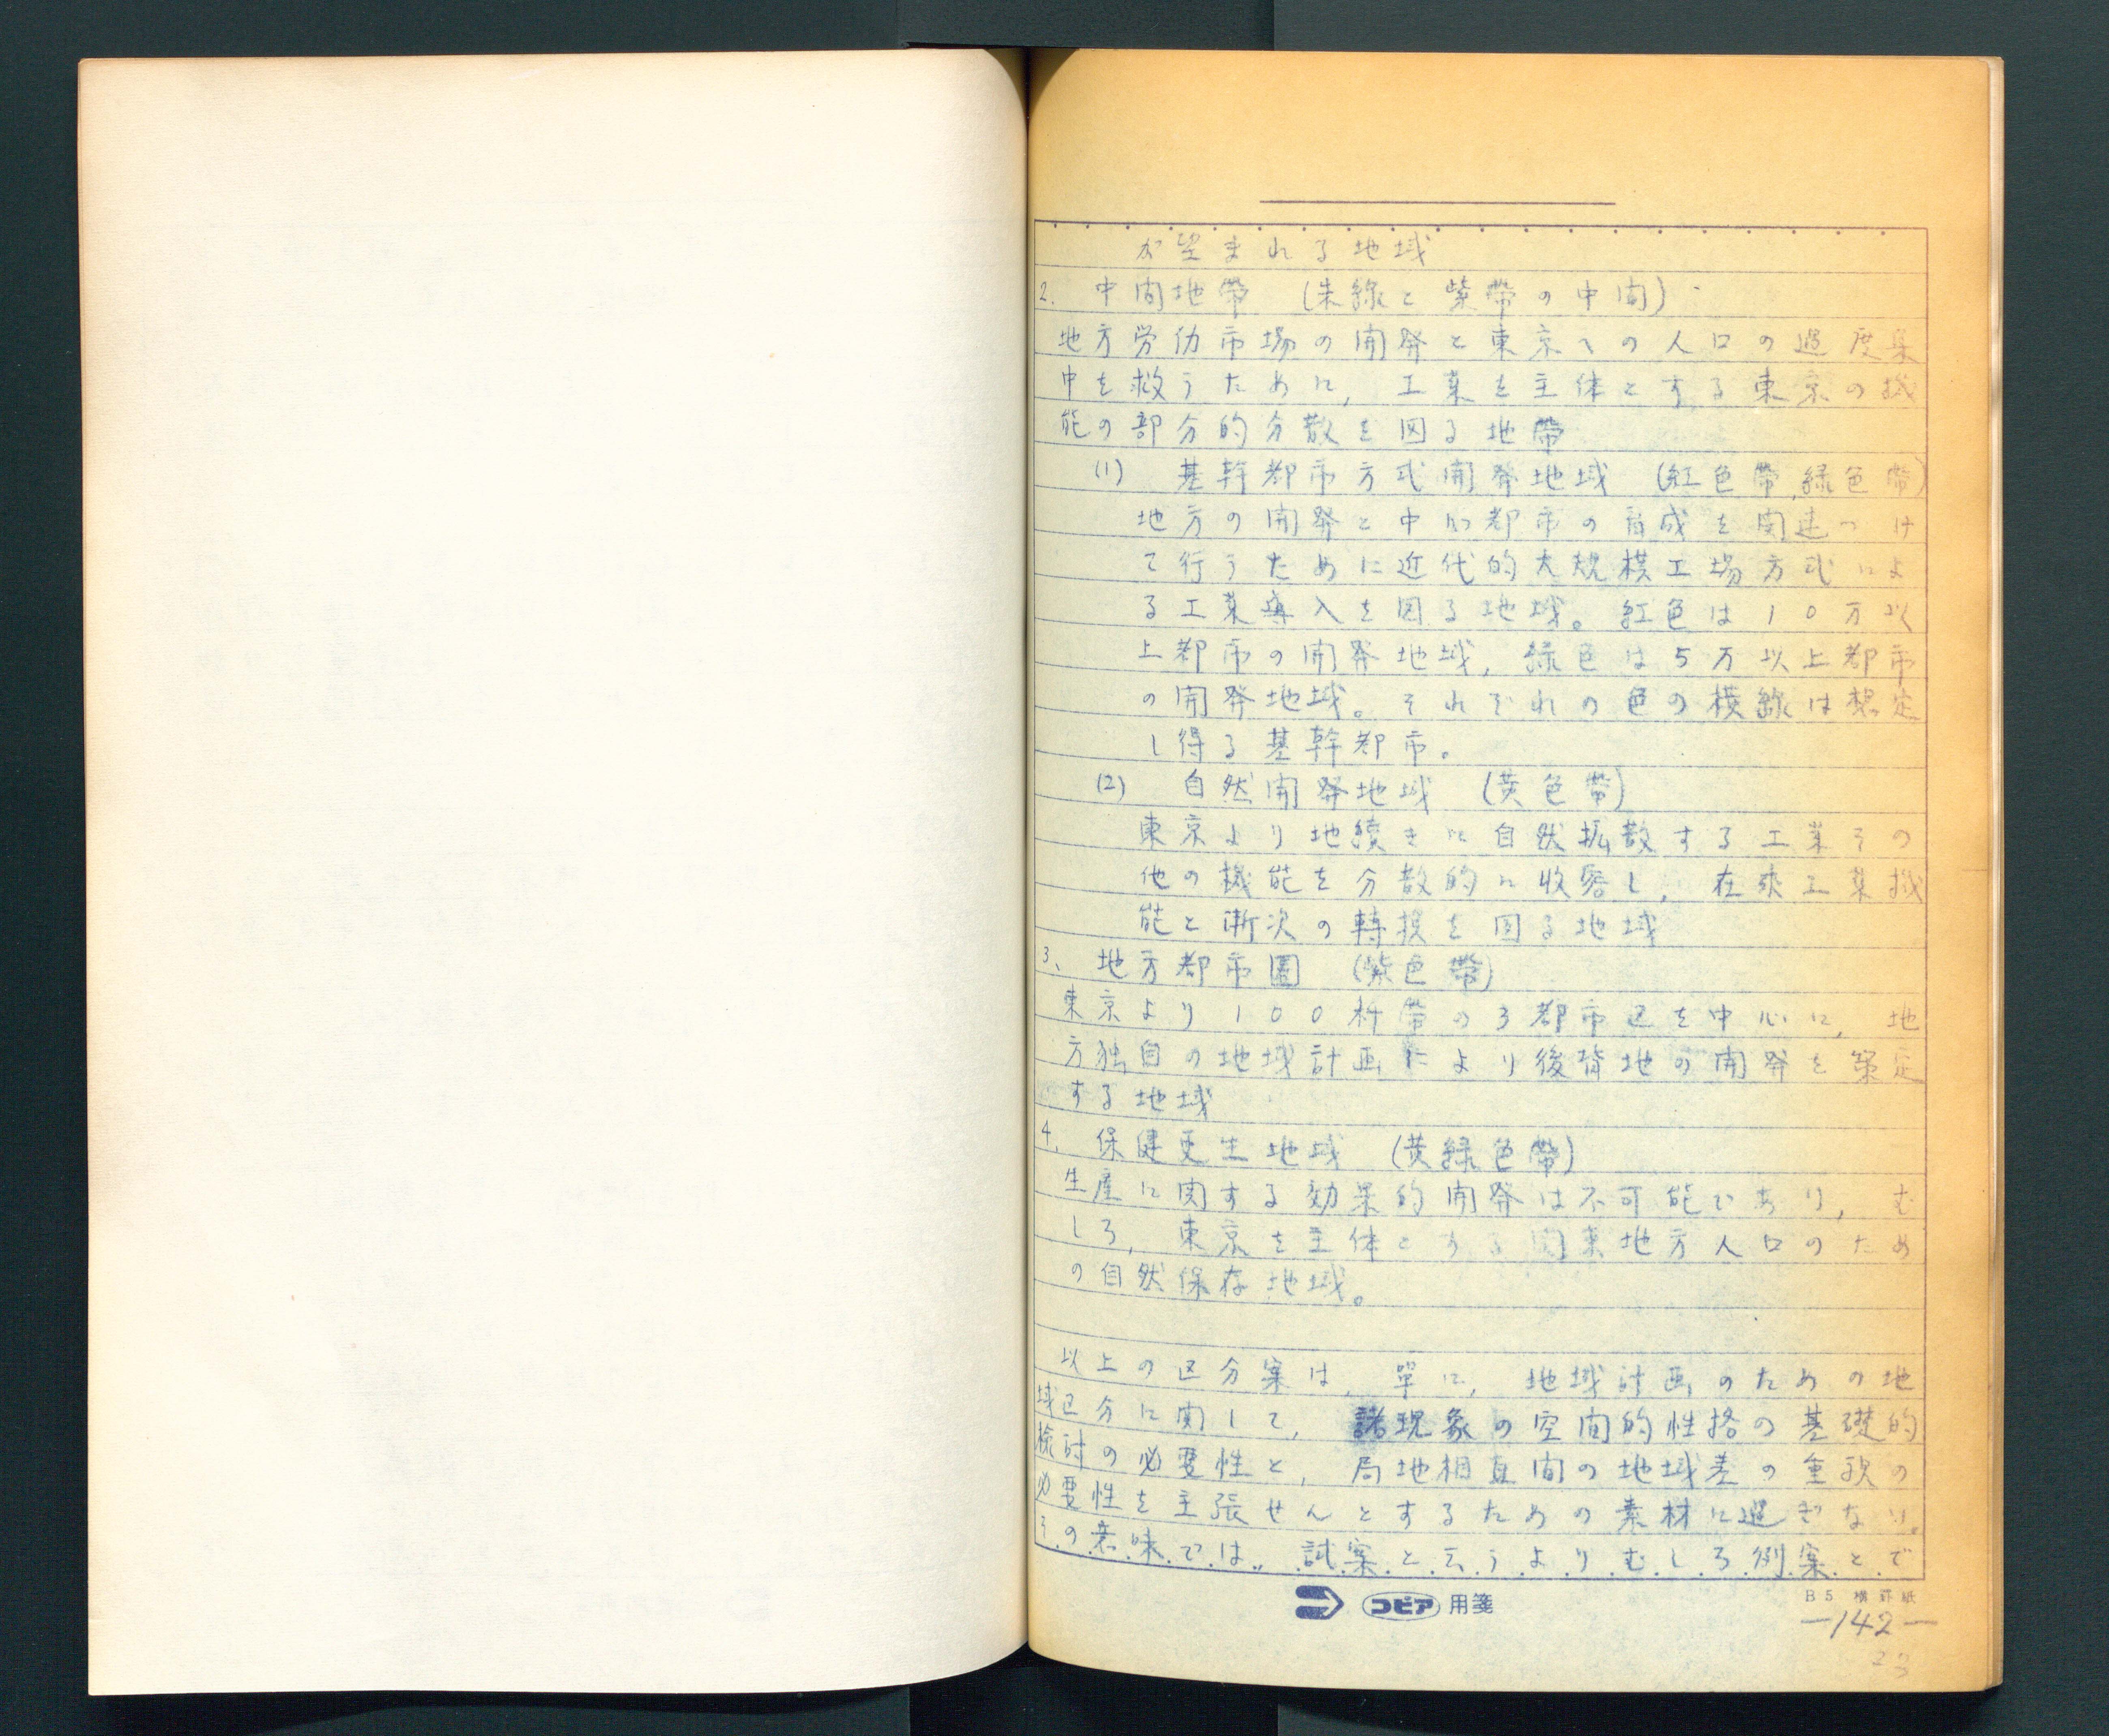 が望まれる地域
2. 中間地帯 (朱線と紫帯の中間)
地方労仂市場の開発と東京への人口の過度集
中を救うために, 工業を主体とする東京の機
能の部分的分散を図る地帯
(1) 基幹都市方式開発地域 (紅色帯,緑色帯)
地方の開発と中心都市の育成を関連つけ
て行うために近代的大規模工場方式によ
る工業導入を図る地域。紅色は10万以
上都市の開発地域, 緑色は5万以上都市
の開発地域。それぞれの色の横線は想定
し得る基幹都市。
(2) 自然開発地域 (黄色帯)
東京より地続きに自然拡散する工業その
他の機能を分散的に收容し, 在来工業機
能と漸次の轉換を図る地域
3、地方都市圏 (紫色帯)
東京より100粁帯の3都市区を中心に, 地
方独自の地域計画により後背地の開発を策定
する地域
4. 保健更生地域 (黄緑色帯)
生産に関する効果的開発は不可能であり, む
しろ, 東京を主体とする関東地方人口のため
の自然保存地域。
以上の区分案は, 單に, 地域計画のための地
域区分に関して, 諸現象の空間的性格の基礎的
検討の必要性と, 局地相互間の地域差の重視の
必要性を主張せんとするための素材に過ぎない。
その意味では, 試案と云うよりむしろ例案とで
コピア 用箋
B5 横罫紙
—142—
23